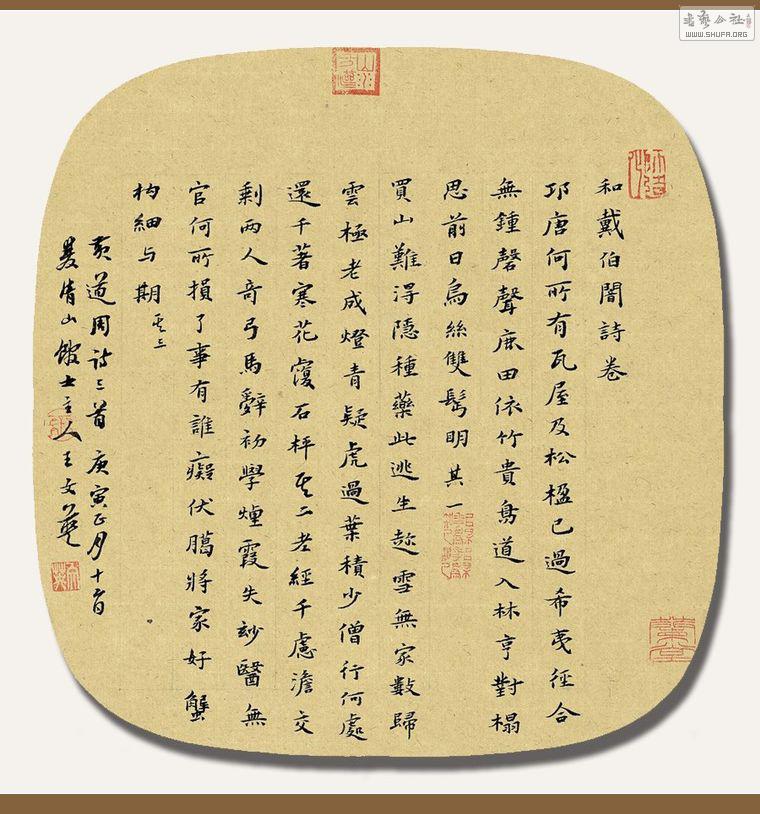 和戴伯闇詩卷
邛唐何所有瓦屋及松楹已過希夷徑合
無鍾磬聲鹿田依竹貴鳥道入林亨對榻
思前日烏絲雙髩明其一
買山難淂隱種藥此逃生趂雪無家數歸
雲極老成燈青疑虎過葉積少僧行何處
還千著寒花覆石枰其二老經千慮澹交
剩兩人奇弓馬辭初學煙霞失玅醫無
官何所損了事有誰癡伏臈將家好蟹
杓細与期其三
黄道周詩三首庚寅正月十
山館主人王文英
書艺公社
WWW.SHUFA.ORG